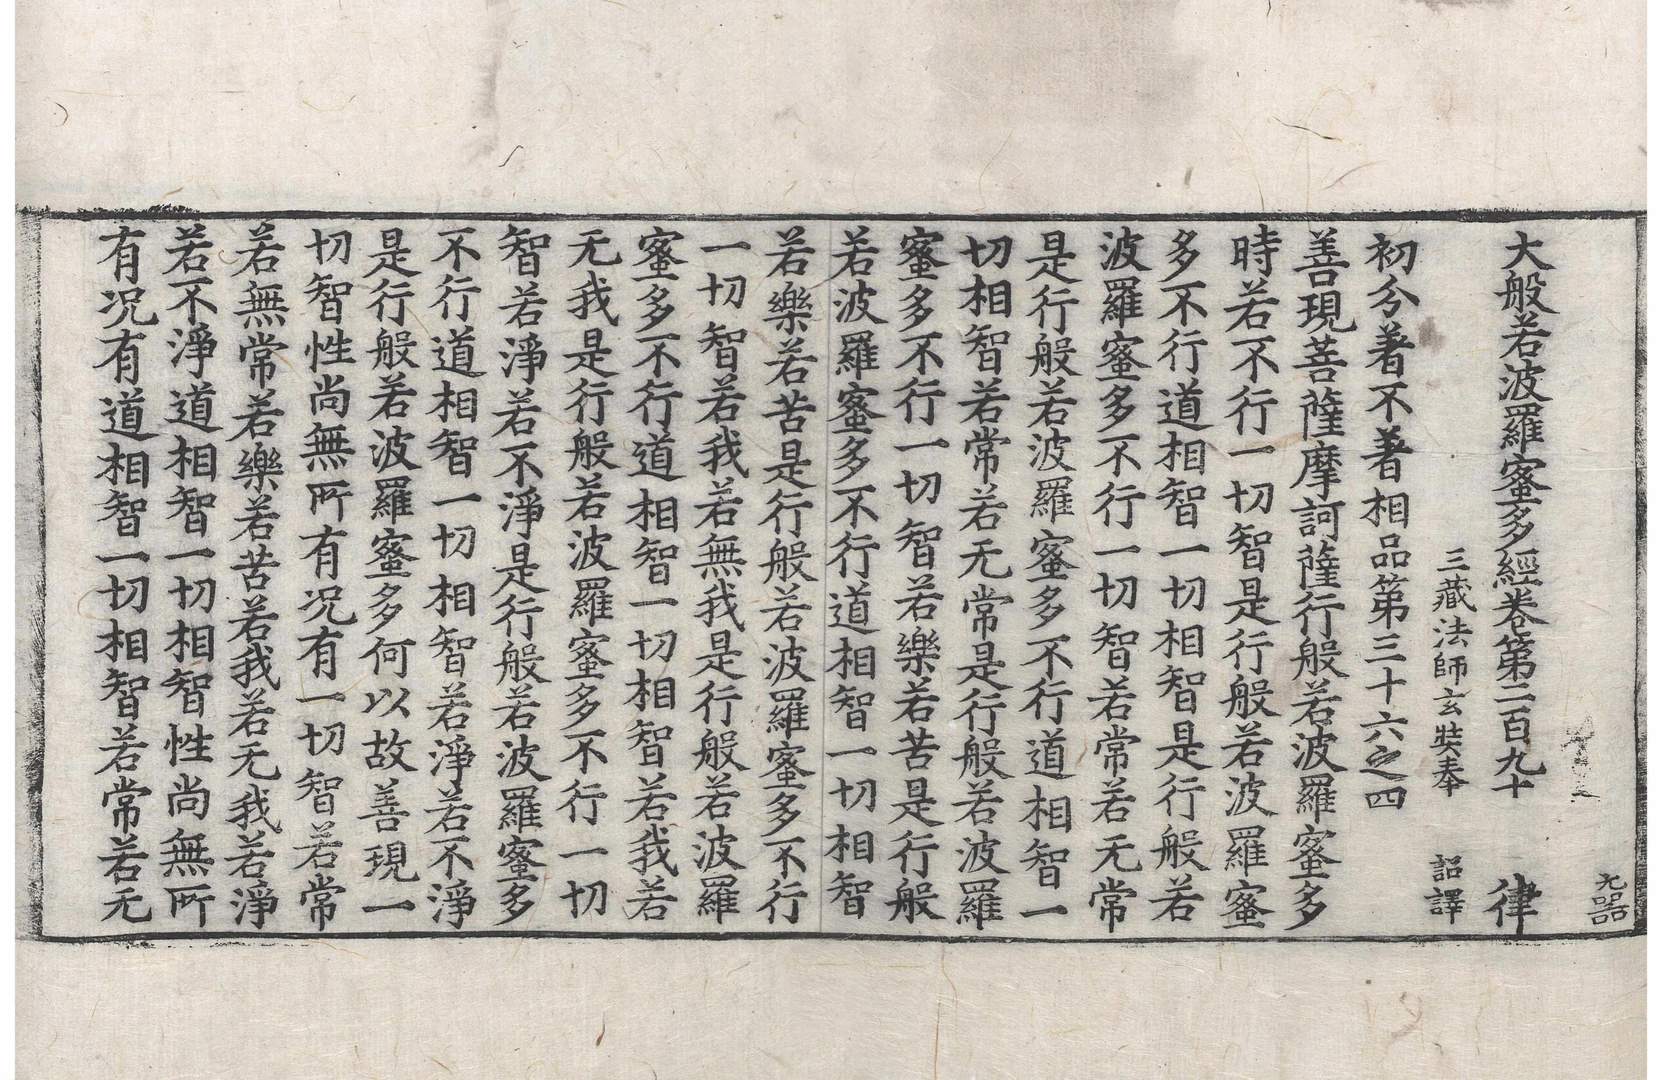 大般若波羅蜜多經卷第二百九十 律
三藏法師玄奘奉 詔譯
初分著不著相品第三十六之四
善現菩薩摩訶薩行般若波羅蜜多
時若不行一切智是行般若波羅蜜
多不行道相智一切相智是行般若
波羅蜜多不行一切智若常若无常
是行般若波羅蜜多不行道相智一
切相智若常若无常是行般若波羅
蜜多不行一切智若樂若苦是行般
若波羅蜜多不行道相智一切相智
若樂若苦是行般若波羅蜜多不行
一切智若我若無我是行般若波羅
蜜多不行道相智一切相智若我若
无我是行般若波羅蜜多不行一切
智若淨若不淨是行般若波羅蜜多
不行道相智一切相智若淨若不淨
是行般若波羅蜜多何以故善現一
切智性尚無所有况有一切智若常
若無常若樂若苦若我若无我若淨
若不淨道相智一切相智性尚無所
有况有道相智一切相智若常若无